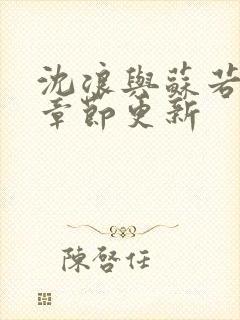 沈浪與蘇若
章節更新
陳啓任